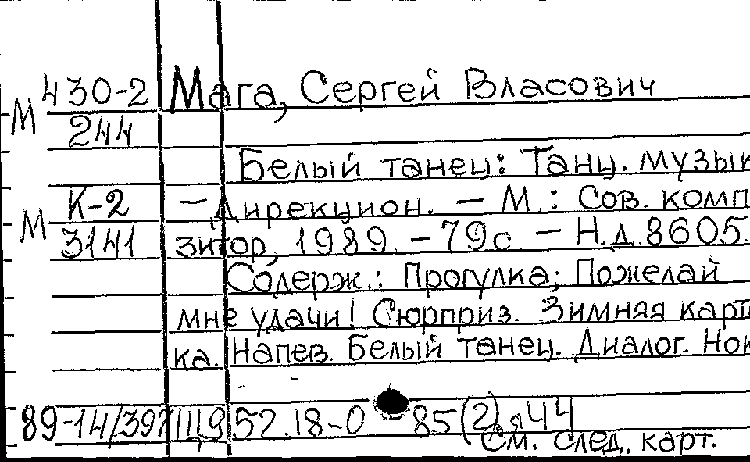 М 430-2 Мага, Сергей Власович
244
Белый танец: Танц. музык
М К-2 - Дирекцион. - М.: Сов. комп
3141 зитор, 1989. - 79с. - Н.д. 8605.
Содерж.: Прогулка; Пожелай
мне удачи! Сюрприз. Зимняя карт
ка. Напев. Белый танец. Диалог. Нок
89-14/397 1119 52.18-0 85(2)я44
См. след. карт.